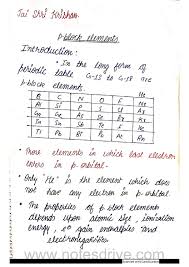 Jai Shri Krishna
p-block elements
Introduction:
• In the long form of
periodic table G-13 to G-18 are
p-block elements
B C N O F He
Al Si P S Cl Ne
Ga Ge As Se Br Ar
In Sn Sb Te I Kr
Tl Pb Bi Po At Xe
Rn
• Those elements in which last electron
enters in p-orbital.
• Only "He" is the element which does
not have any electron in p-orbital.
• The properties of p block elements
depends upon atomic size, ionization
energy, e⁻ gain enthalpies and
electronegativities
www.notesdrive.com